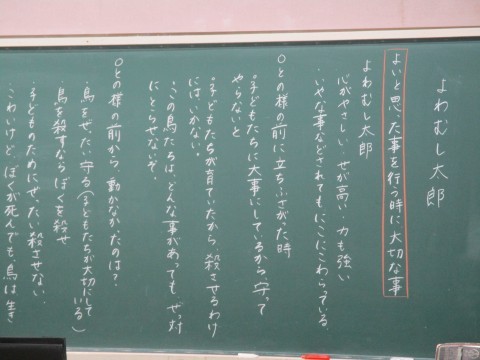 よわむし太郎
よいと思った事を行う時に大切な事
よわむし太郎
心がやさしい・せが高い・力も強い
いやな事などされてもにこにこわらっている。
○との様の前に立ちふさがった時
・子どもたちに大事にしているから守って
やらないと
・子どもたちが育ていたから殺させるわけ
にはいかない。
・この鳥たちは、どんな事があっても、ぜっ対
にとらせないぞ。
○との様の前から動かなかったのは?
・鳥をぜったい守る(子どもたちが大切にして
いる)
・鳥を殺すならぼくを殺せ
・子どものためにぜったい殺させない。
・こわいけど、ぼくが死んでも、鳥は生き